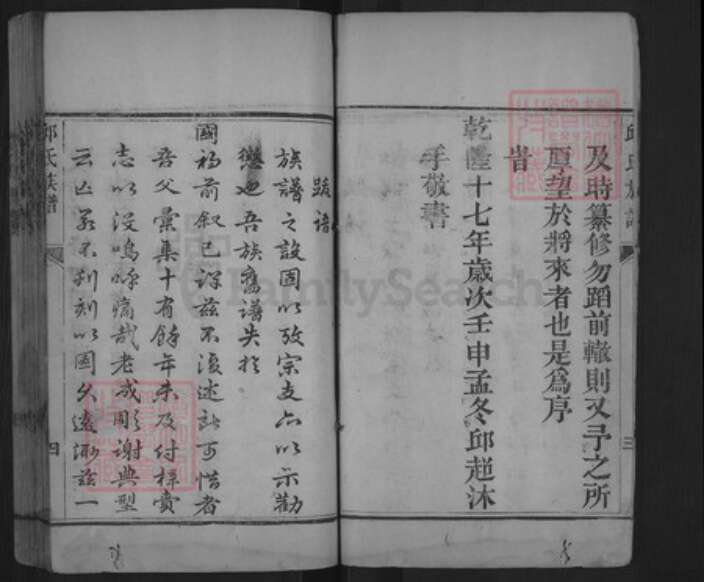 及時纂修勿蹈前轍則又予之所
厚望於將來者也是為序
旹
乾隆十七年歲次壬申孟冬邱趙沐
手敬書
三
跋語
族譜之設固以攷宗支亦以示勸
懲也吾族舊譜失於
國初前叙已詳茲不復述所可惜者
吾父彙集十有餘年未及付梓賫
志以沒嗚呼痛哉老成凋謝典型
云亡若不刊刻以圖久遠
茲一
邱氏族譜
四
FamilySearch